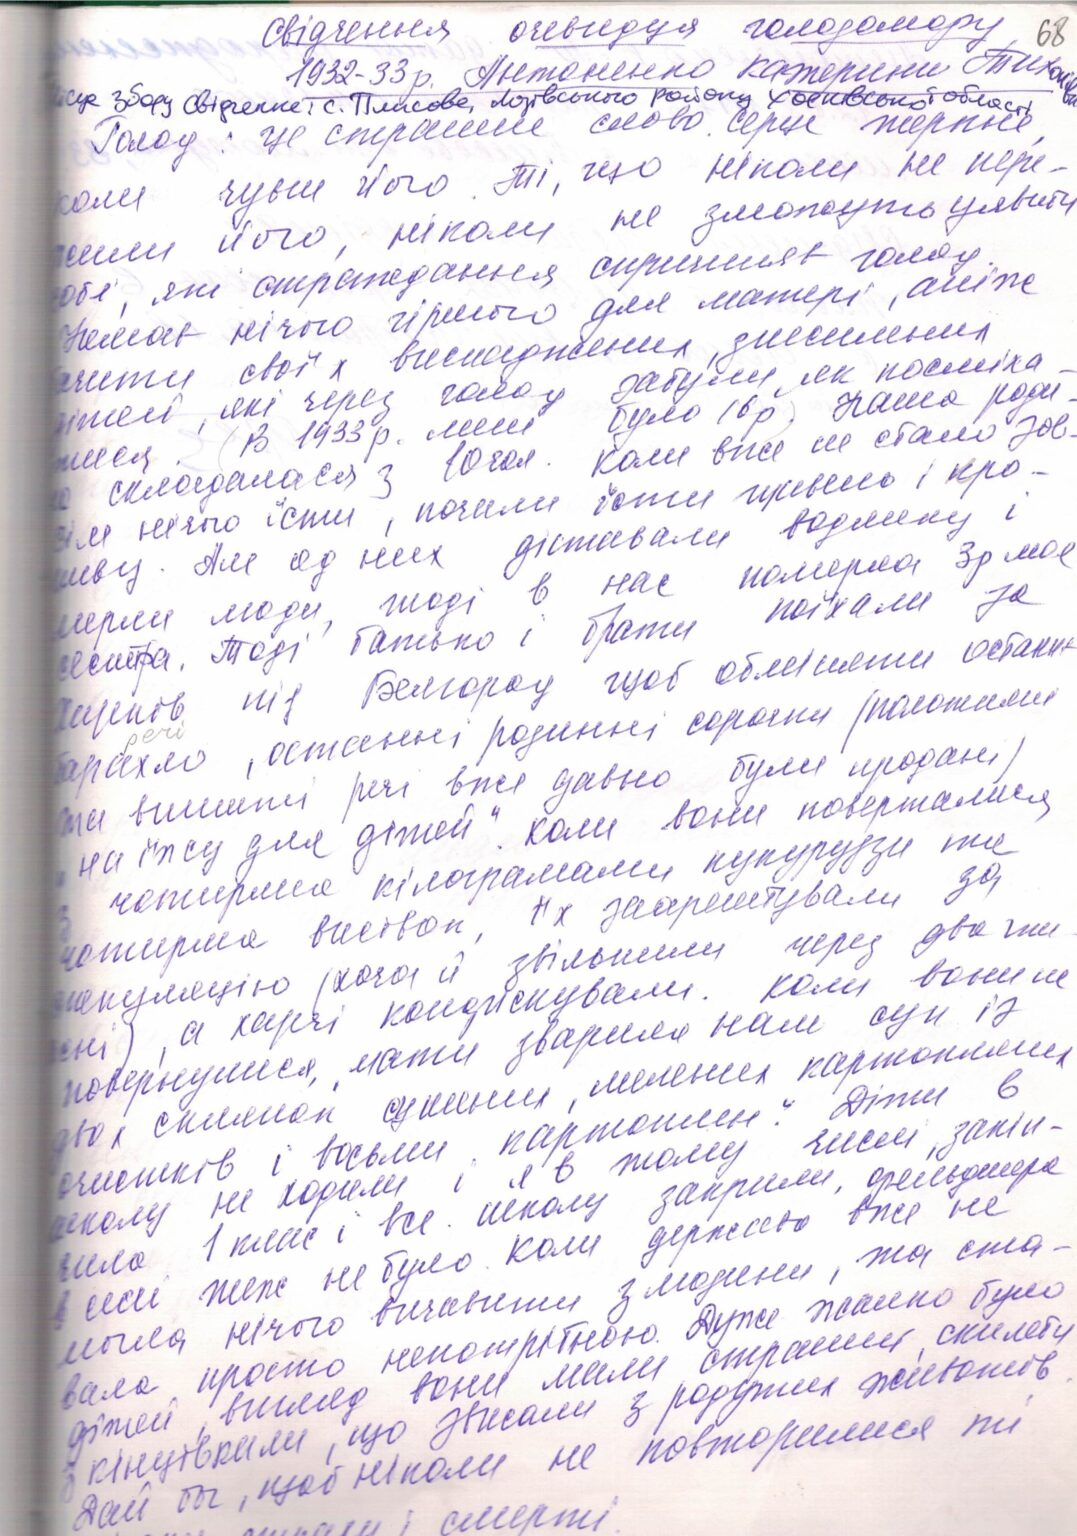 68
Свідчення очевидця голодомору
1932-33 р. Антоненко Катерини
збору свідчення: с. Плисове, Лозівського району Харківської області
Голод: це страшне слово. Серце терпне,
коли чуєш його. Ті, що ніколи не пере-
жили його, ніколи не зможуть уявити
собі, які страждання спричиняв голод.
Немає нічого гіршого для матері, аніж
бачити своїх виснажених, знесилених
дітей, які через голод забули, як посміха-
тися. (В 1933 р. мені було 16 р) Наша роди-
на складалася з 10 чол. Коли вже не стало зов-
сім нічого їсти, почали їсти і кро-
пиву. Але од них діставали водянку і
мерли люди, тоді в нас померла 3 р моя
сестра. Тоді батько і брати поїхали за
Харків під Бєлгород щоб обміняти останнє
речі
барахло, останні родинні сорочки (полотняні
та вишиті речі вже давно були продані)
на їжу для дітей". Коли вони поверталися
з чотирма кілограмами кукурудзи та
чотирма, їх заарештували за
спекуляцію (хоча й звільнили через два ти-
жні), а харчі конфіскували. Коли вони не
повернулися, мати зварила нам суп із
двох склянок сушених, мелених картопляних
очистків і восьми картоплин". Діти в
школу не ходили і я в тому числі, закін-
чила 1 клас і все. Школу закрили, фельдшера
в селі теж не було. Коли держава вже не
могла нічого вичавити з людини, та ста-
вала просто непотрібною. Дуже жалко було
дітей, вигляд вони мали страшний, скилети
з кінцівками, що звисали з роздутих животів.
Дай бог, щоб ніколи не повторилися ті
і смерті.